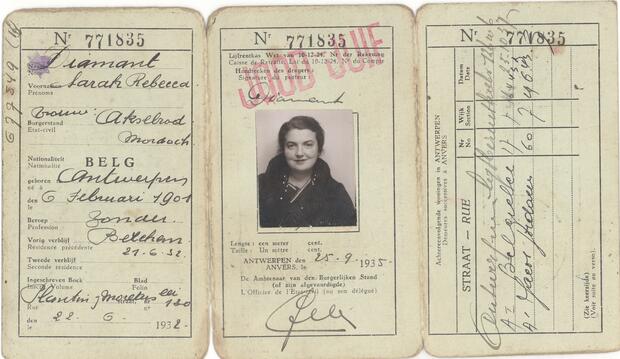 Nr 771835
Diamant
Voornamen Sarah Rebecca
Prénoms
Akselrod
Burgerstand
Etat-civil
Mordoch
Nationaliteit BELG
Nationalité
geboren Antwerpen
né à
den 6 Februari 1901
le
Beroep Zonder
Profession
Vorig verblijf Berchem
Résidence précédente
21-6-32
Tweede verblijf
Seconde résidence
Ingeschreven Boek Blad
Inscrit Volume Folio
Plantin Moretus lei
Rue 120
den 22 - 6 - 1932
le
Nr 771835
Lijfrentkas Wet van 10-12-24, Nr der Rekening
Caisse de Retraite, Loi du 10-12-24, No du Compte
Handteeken des dragers
Signature du porteur
JOOD-JUIF
Diamant
Lengte : een meter cent.
Taille : Un mètre cent.
ANTWERPEN
ANVERS,
den 25-9 1935
De Ambtenaar van den Burgerlijken Stand
(of zijn afgevaardigde)
L'Officier de l'Etat-civil (ou son délégué)
Nr 771835
Achtereenvolgende woningen in ANTWERPEN
Demeures successives à ANVERS
STRAAT - RUE
Nr
No
Wijk
Section
Datum
Date
Antwerpen
A' Belgiëlei
A' Jacob Jordaens
60
(Zie keerzijde)
(Voir suite au verso).